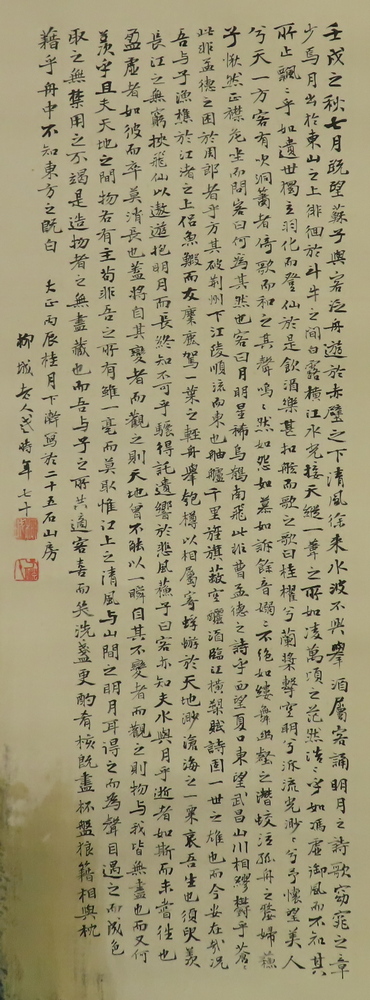 壬戌之秋七月既望蘇子與客泛舟遊於赤壁之下清風徐來水波不興舉酒屬客誦明月之詩歌窈窕之章
少焉月出於東山之上徘徊於斗牛之間白露橫江水光接天縱一葦之所如凌萬頃之茫然浩〻乎如馮虛御風而不知其
所止飄〻乎如遺世獨立羽化而登仙於是飲酒樂甚扣舷而歌之歌曰桂櫂兮蘭槳擊空明兮泝流光渺〻兮予懷望美人
兮天一方客有吹洞簫者倚歌而和之其聲嗚〻然如怨如慕如訴餘音嫋〻不絕如縷舞幽壑之潛蛟泣孤舟之嫠婦蘇
子愀然正襟危坐而問客曰何為其然也客曰月明星稀烏鵲南飛此非曹孟德之詩乎西望夏口東望武昌山川相繆鬱乎蒼〻
此非孟德之困於周郎者乎方其破荊州下江陵順流而東也舳艫千里旌旗蔽空釃酒臨江橫槊賦詩固一世之雄也而今安在哉況
吾與子漁樵於江渚之上侶魚蝦而友麋鹿駕一葉之輕舟舉匏樽以相屬寄蜉蝣於天地渺滄海之一粟哀吾生也須臾羨
長江之無窮挾飛仙以遨遊抱明月而長終知不可乎驟得託遺響於悲風蘇子曰客亦知夫水與月乎逝者如斯而未嘗往也
盈虛者如彼而卒莫消長也蓋將自其變者而觀之則天地曾不能以一瞬自其不變者而觀之則物與我皆無盡也而又何
羨乎且夫天地之間物各有主苟非吾之所有雖一毫而莫取惟江上之清風與山間之明月耳得之而為聲目遇之而成色
取之無禁用之不竭是造物者之無盡藏也而吾與子之所共適客喜而笑洗盞更酌肴核既盡杯盤狼籍相與枕
藉乎舟中不知東方之既白 大正丙辰桂月下澣寫於二十五石山房
柳城老人 時年七十